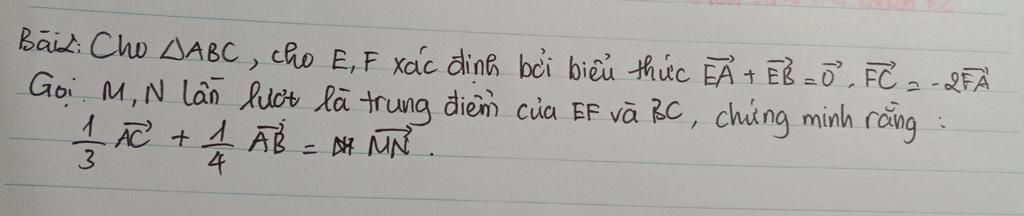 Bài2: Cho ΔABC, cho E,F xác định bởi biểu thức $\overrightarrow{EA} + \overrightarrow{EB} = \vec{0}$. $\overrightarrow{FC} = -2\overrightarrow{FA}$
Gọi M,N lần lượt là trung điểm của EF và BC, chứng minh rằng:
$\frac{1}{3}\overrightarrow{AC} + \frac{1}{4}\overrightarrow{AB} = \overrightarrow{MN}$.